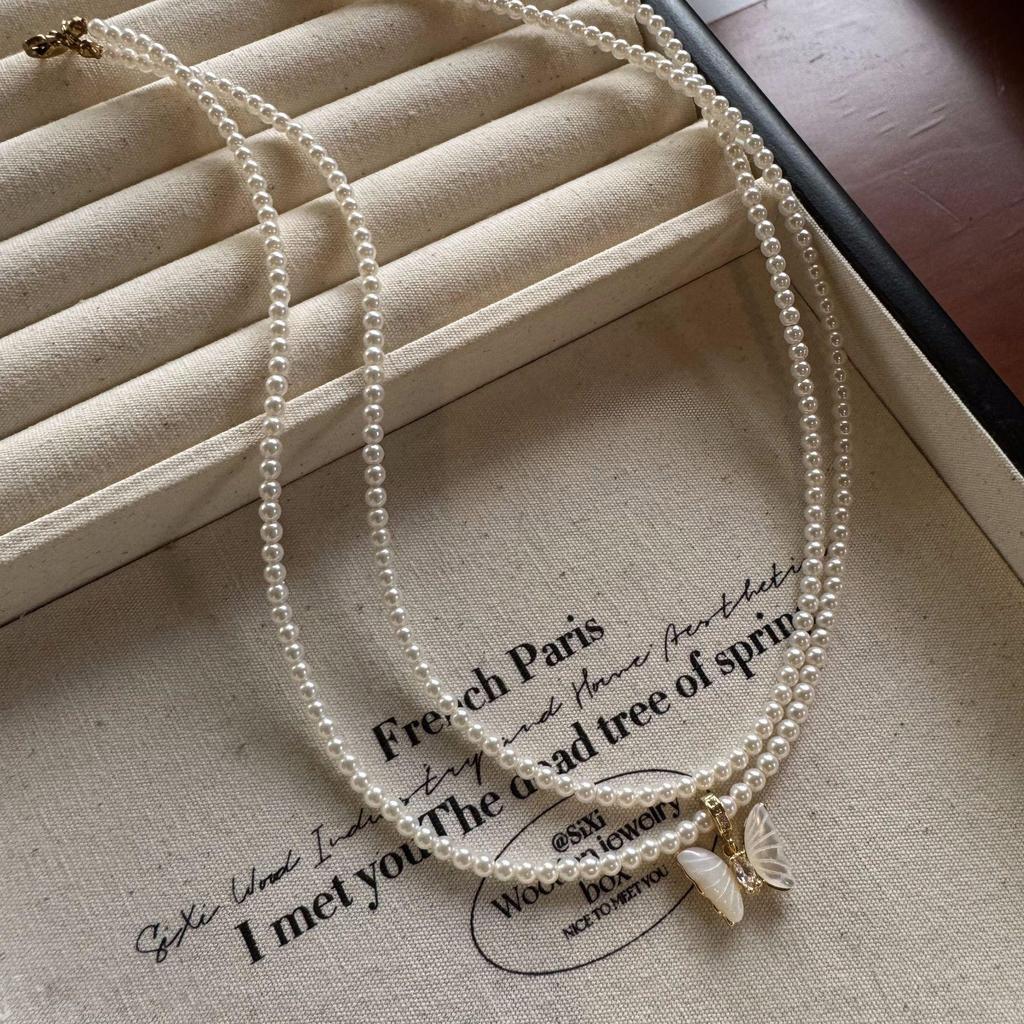 French Paris
SiXi Wood Industry and Home Aesthetics
I met you The dead tree of spring
@SiXi
Wooden jewelry
box
NICE TO MEET YOU